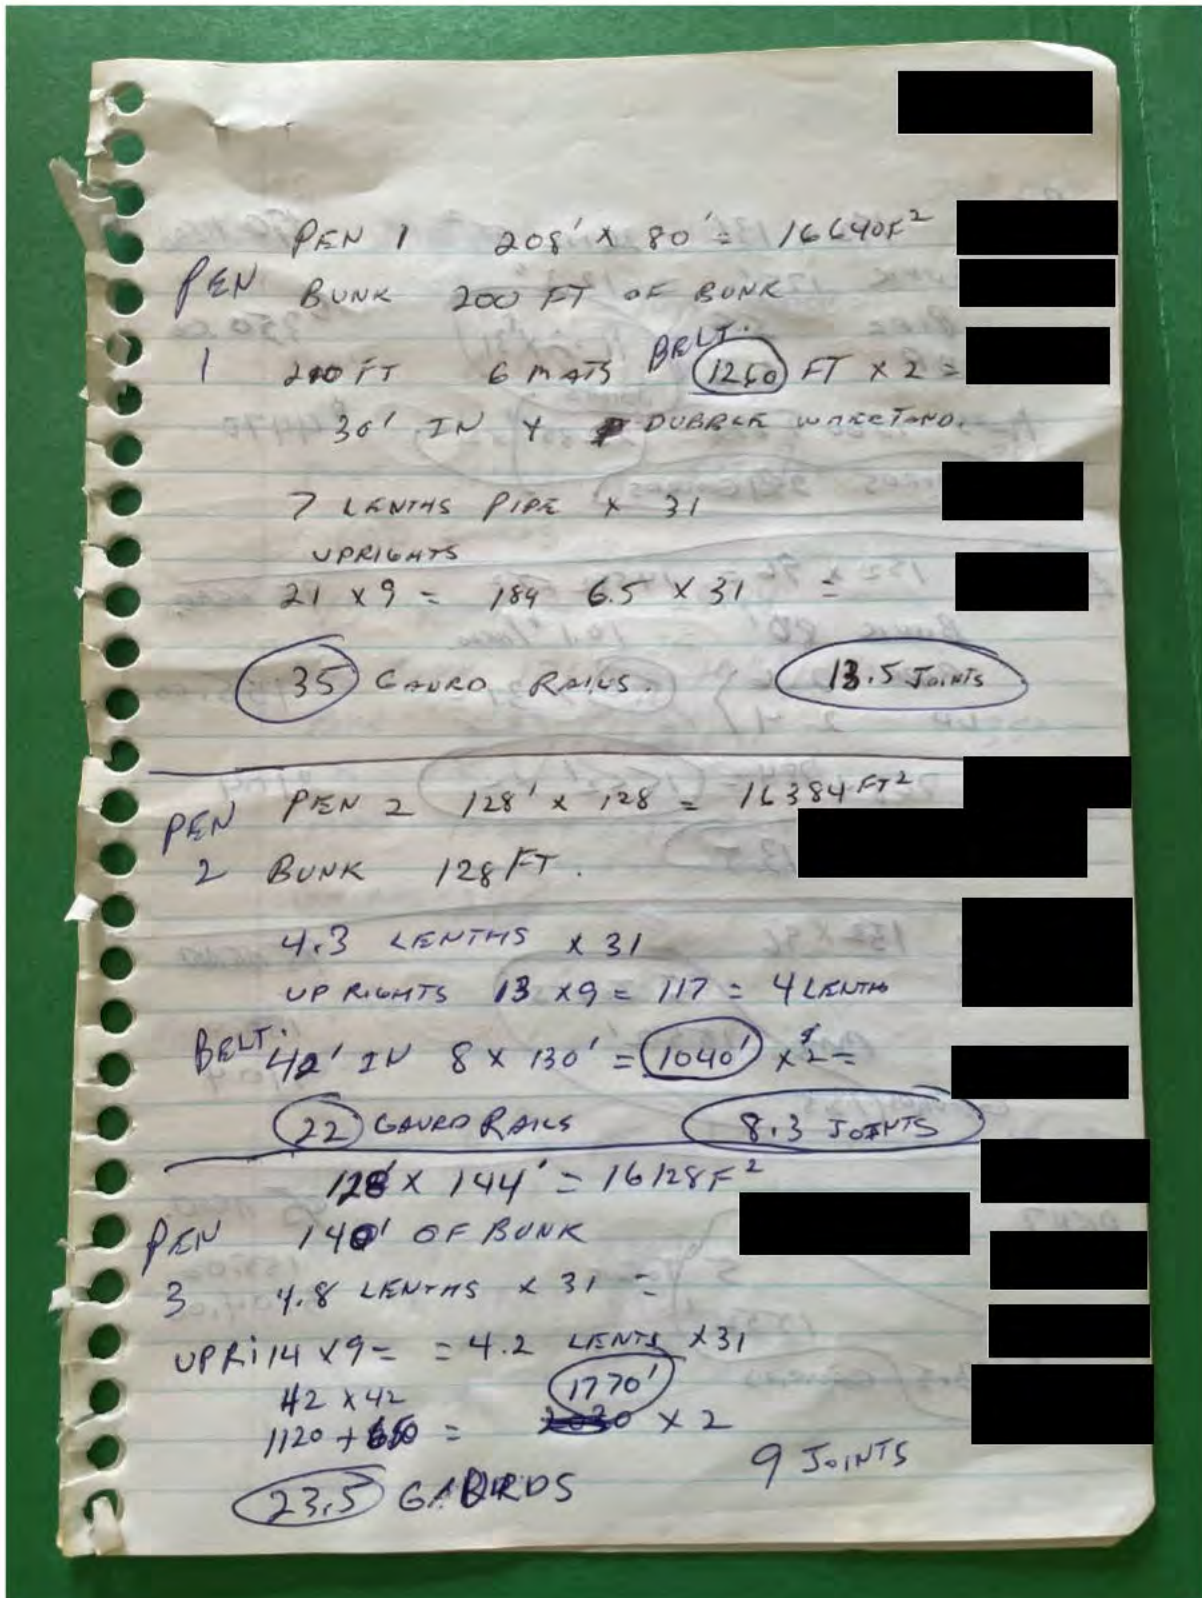 PEN 1 208' X 80' = 16640F²
PEN BUNK 200 FT OF BUNK
BELT.
1 210 FT 6 MATS 1260 FT X 2 =
30' IN X DUBBLE
7 LENTHS PIPE X 31
UPRIGHTS
21 X 9 = 189 6.5 X 31 =
35 GAURD RAILS. 13.5 JOINTS
PEN 2 128' X 128 = 16384 FT²
PEN
2 BUNK 128 FT.
4.3 LENTHS X 31
UPRIGHTS 13 X 9 = 117 = 4 LENTHS
BELT.
42' IN 8 X 130' = 1040' X 2 =
22 GAURD RAILS 8.3 JOINTS
128' X 144' = 16128F²
PEN 140' OF BUNK
3 4.8 LENTHS X 31 =
UPRi 14 X 9 = = 4.2 LENTS X 31
42 X 42 1770'
1120 + 650 = X 2
9 JOINTS
23.5 GAURDS